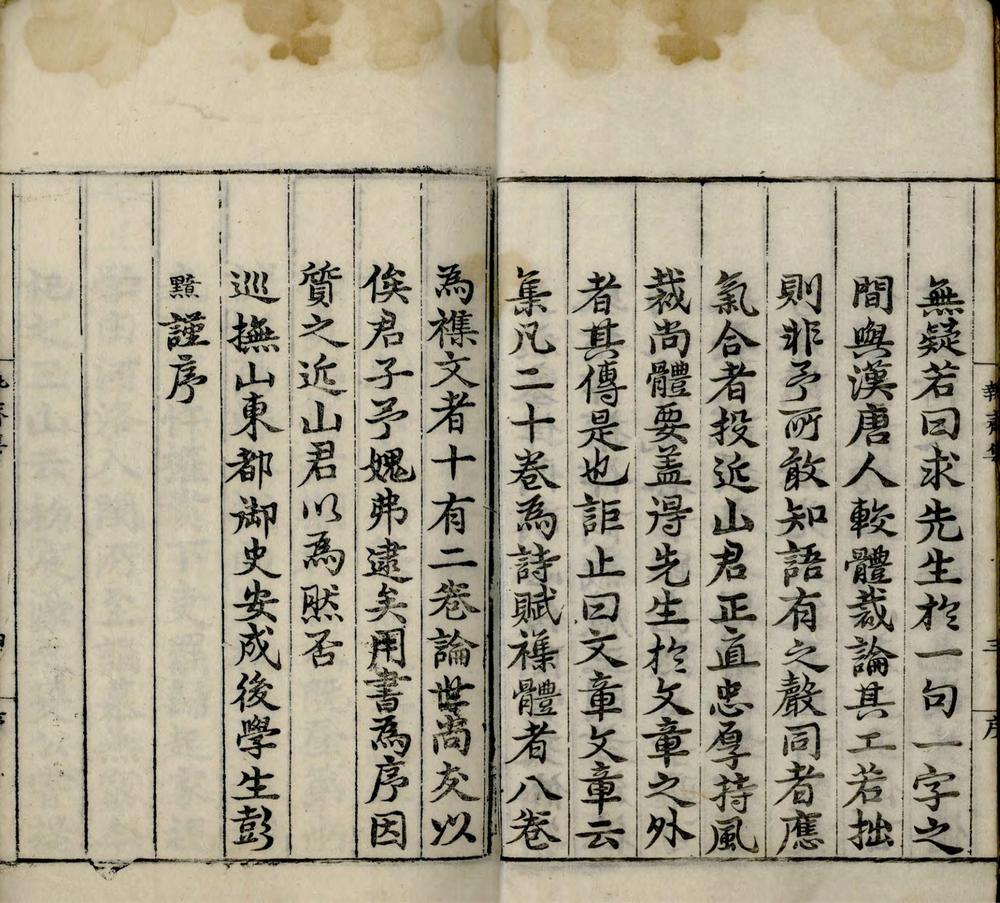 無疑若曰求先生於一句一字之
間與漢唐人較體裁論其工若拙
則非予所敢知語有之聲同者應
氣合者投近山君正直忠厚持風
裁尚體要蓋得先生於文章之外
者其傳是也詎止曰文章文章云
集凡二十卷為詩賦襍體者八卷
為襍文者十有二卷論世尚友以
俟君子予媿弗逮矣用書為序因
質之近山君以為然否
巡撫山東都御史安成後學生彭
黯謹序